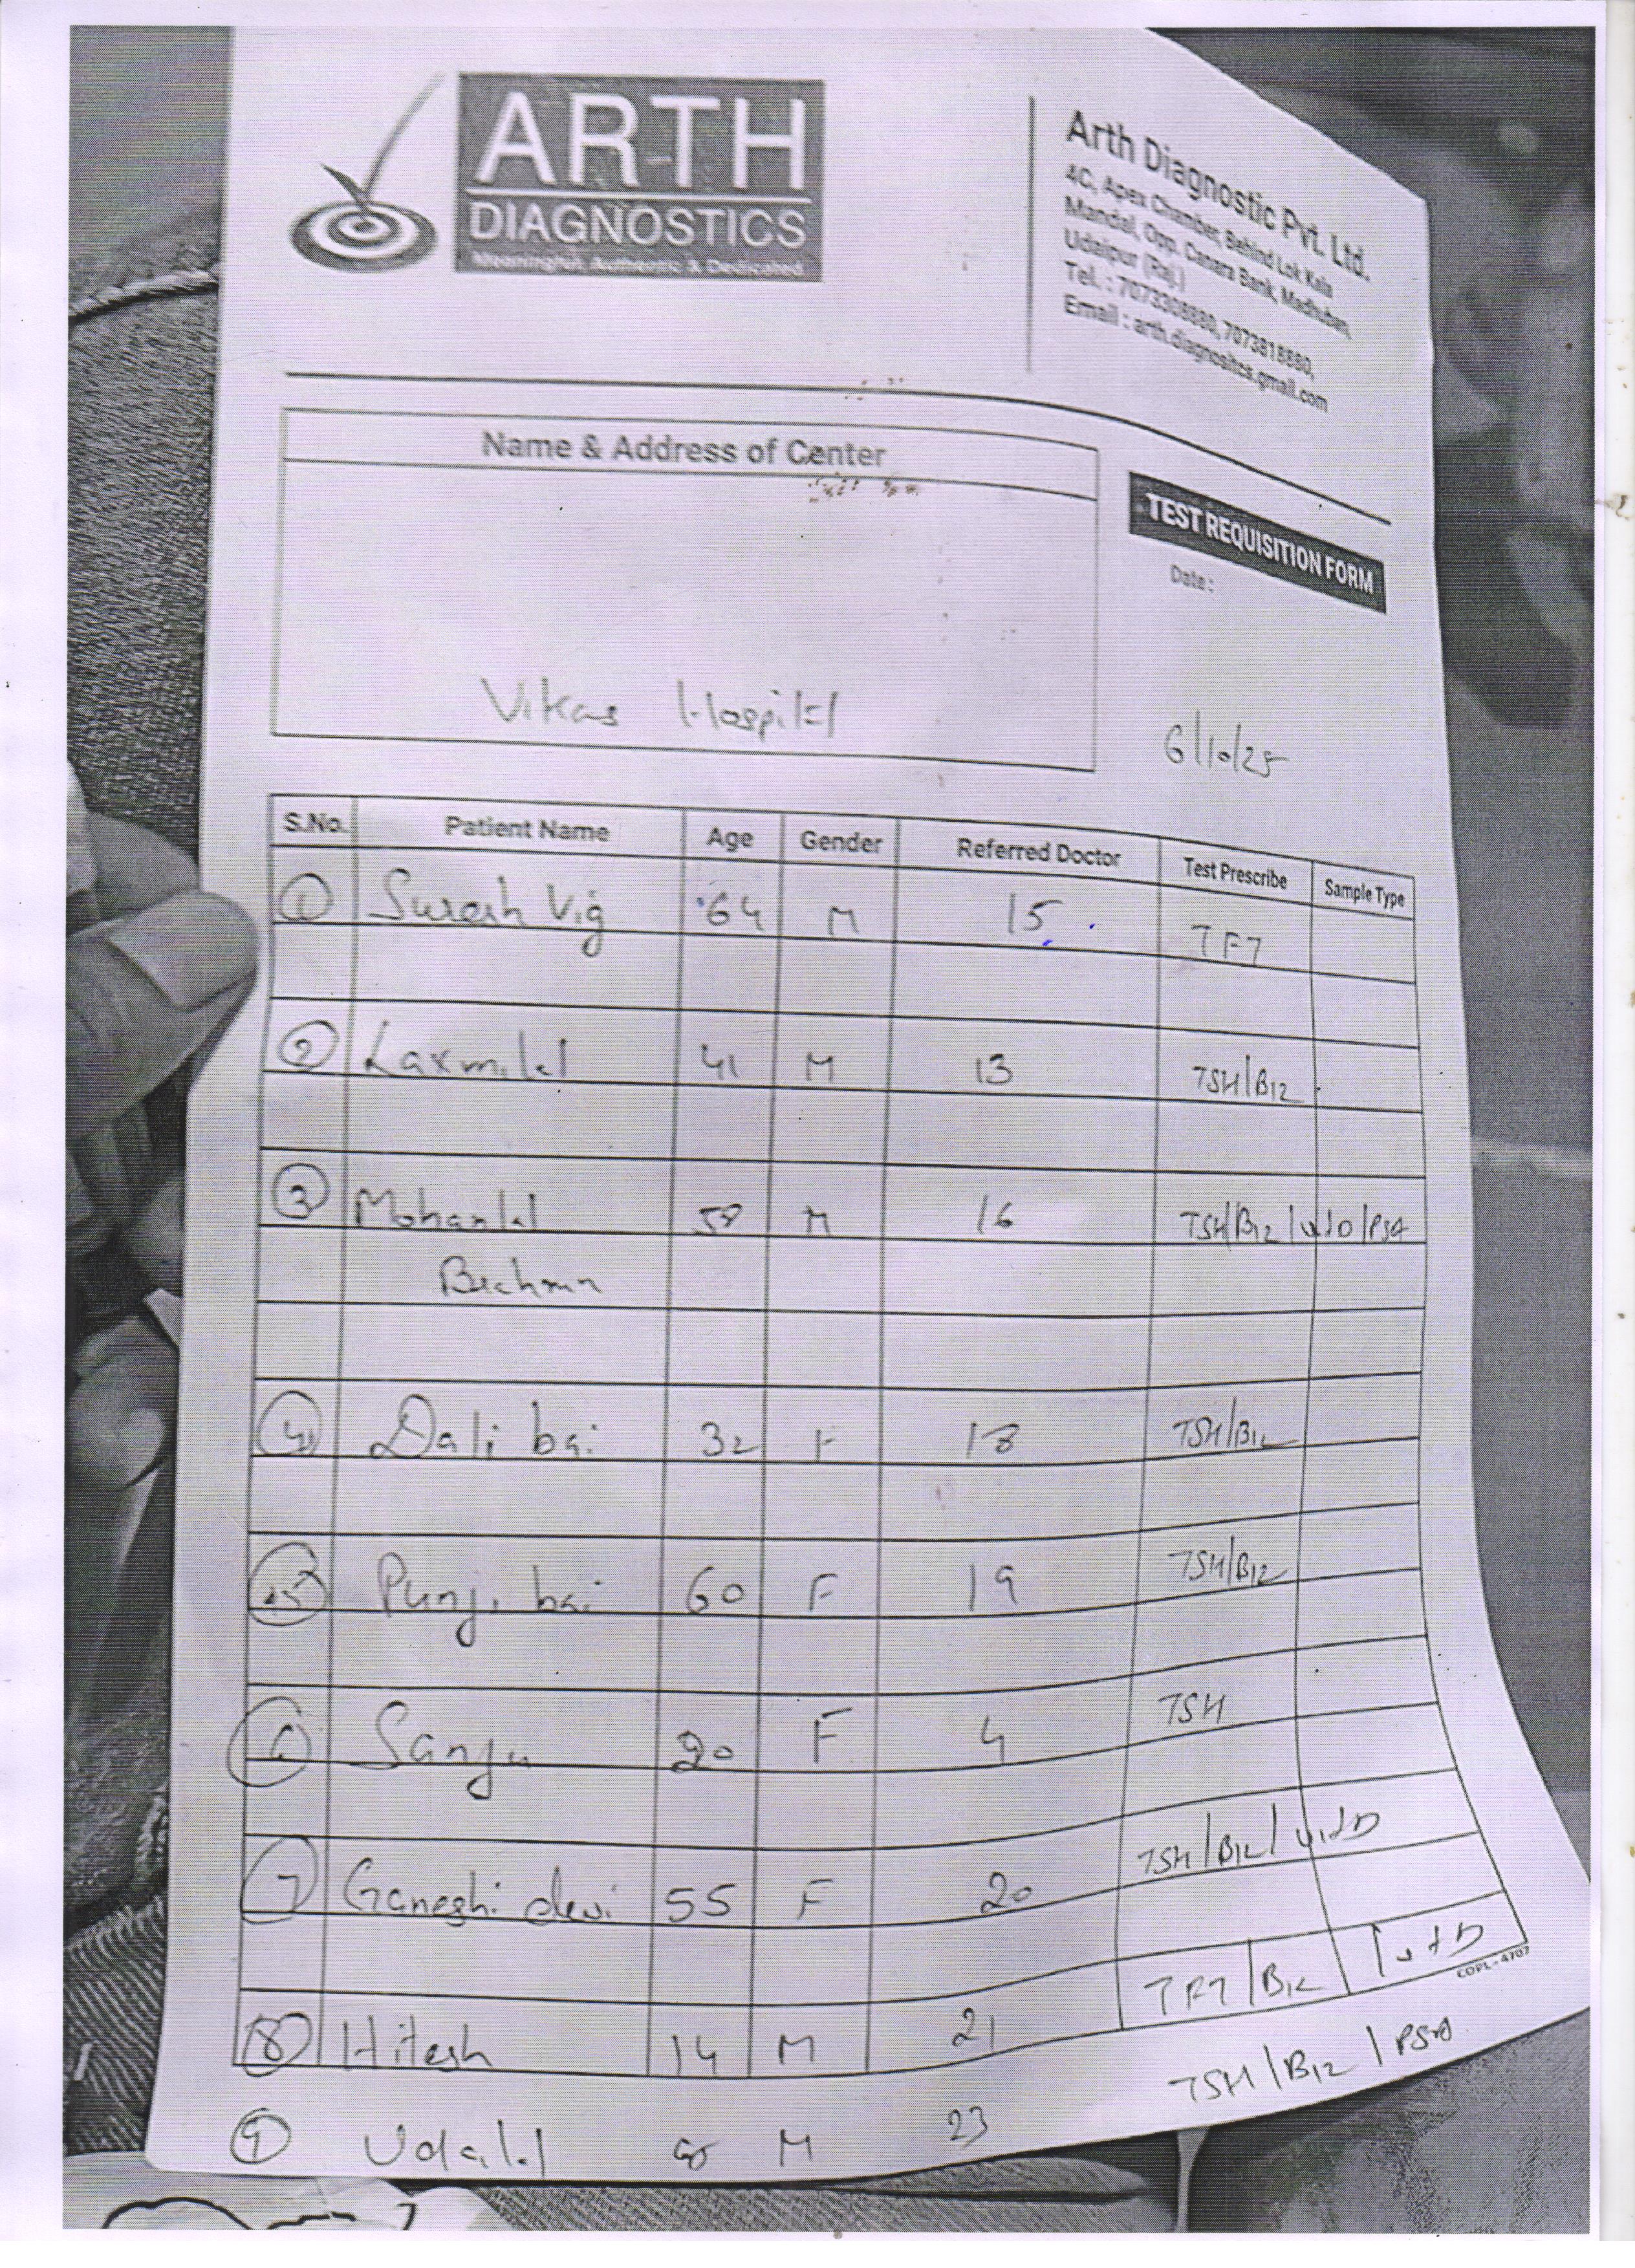 ARTH
DIAGNOSTICS
Meaningful, Authentic & Dedicated
Arth Diagnostic Pvt. Ltd.
4C, Apex Chamber, Behind Lok Kala
Mandal, Opp. Canara Bank, Madhuban,
Udaipur (Raj.)
Tel. : 7073308880, 7073818880,
Email : arth.diagnositcs.gmail.com
Name & Address of Center
TEST REQUISITION FORM
Date :
Vikas Hospital
6/10/25
S.No. Patient Name Age Gender Referred Doctor Test Prescribe Sample Type
1 Suresh Vig 64 M 15 TFT
2 Laxmilal 41 M 13 TSH/B12
3 Mohanlal 58 M 16 TSH/B12/vitD/PSA
4 Dali bai 32 F 18 TSH/B12
5 Punji bai 60 F 19 TSH/B12
6 Sanju 20 F 4 TSH
7 Ganeshi devi 55 F 20 TSH/B12/vitD
8 Hitesh 14 M 21 TFT/B12/vitD
COPL-4707
9 Udailal M 23 TSH/B12/PSA